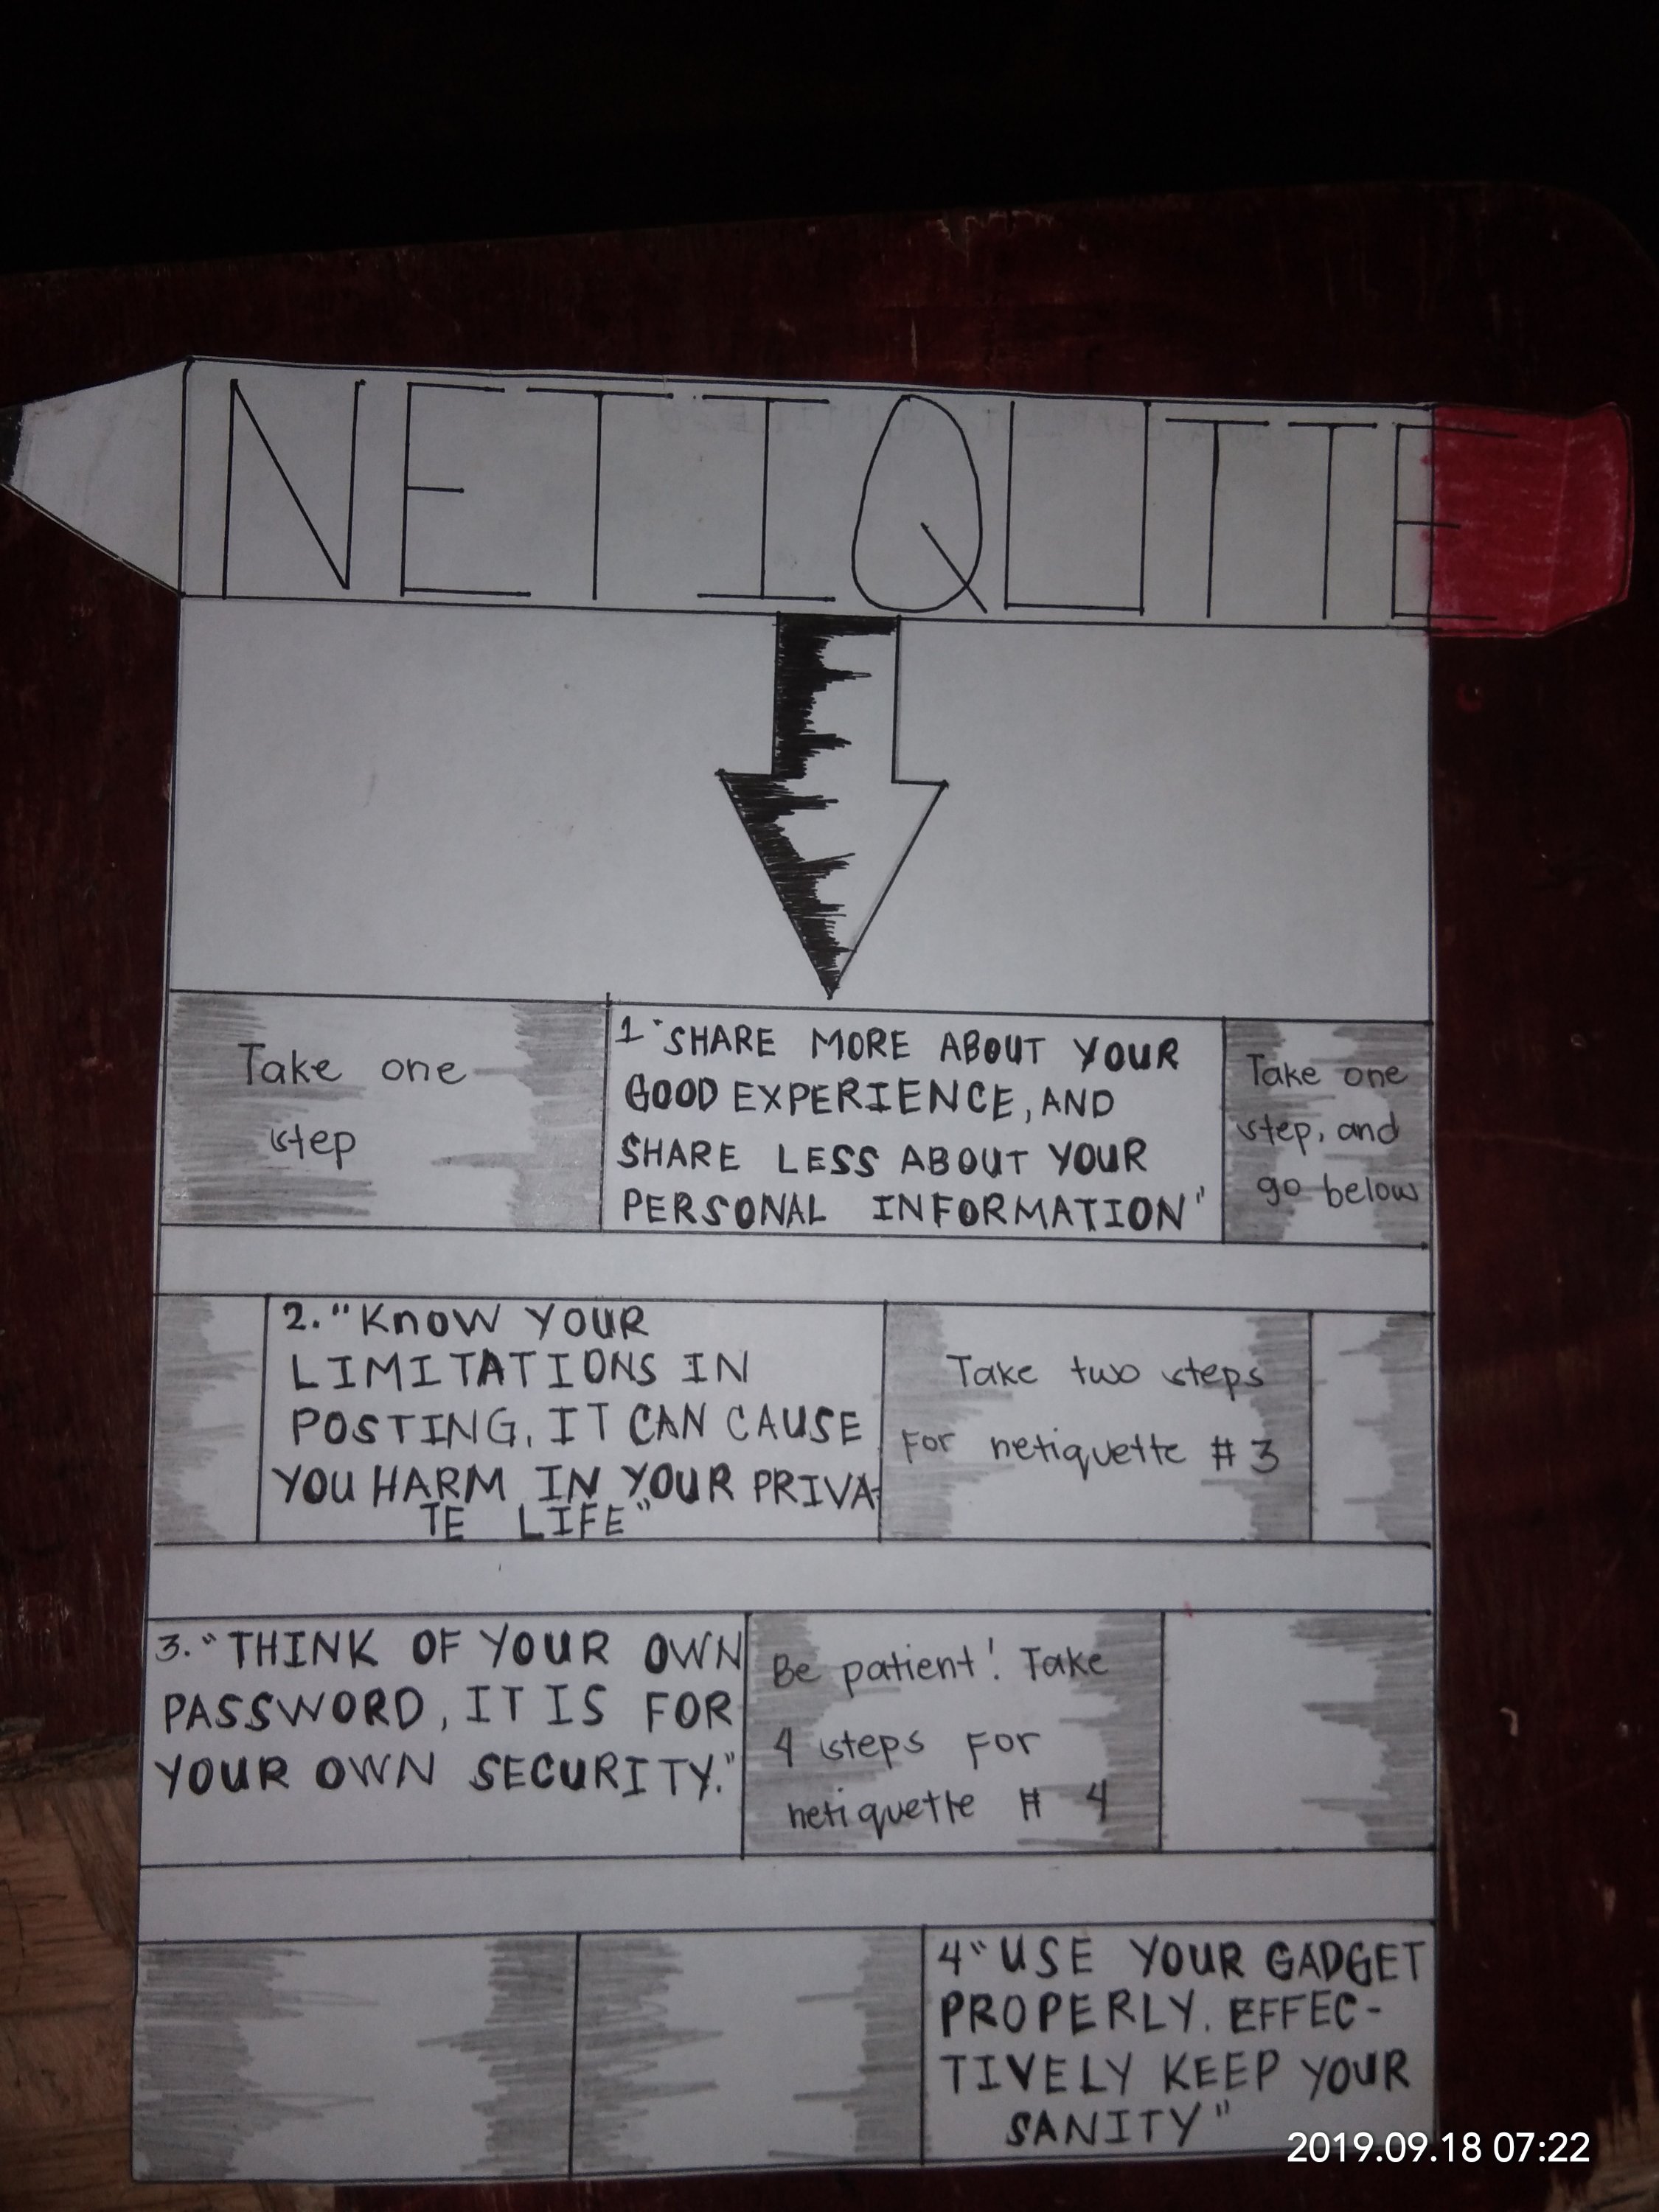 NETIQUTTE
Take one
step
1 "SHARE MORE ABOUT YOUR
GOOD EXPERIENCE, AND
SHARE LESS ABOUT YOUR
PERSONAL INFORMATION"
Take one
step, and
go below
2. "KnoW YOUR
LIMITATIONS IN
POSTING, IT CAN CAUSE
YOU HARM IN YOUR PRIVA-
TE LIFE"
Take two steps
For netiquette # 3
3. "THINK OF YOUR OWN
PASSWORD, IT IS FOR
YOUR OWN SECURITY."
Be patient! Take
4 steps For
netiquette # 4
4 "USE YOUR GADGET
PROPERLY. EFFEC-
TIVELY KEEP YOUR
SANITY"
2019.09.18 07:22